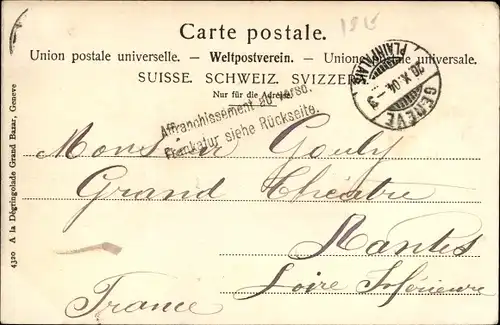 1815
Carte postale.
Union postale universelle. — Weltpostverein. — Unione postale universale.
SUISSE. SCHWEIZ. SVIZZERA.
Nur für die Adresse.
GENÈVE
PLAINPALAIS
20.X.04.-3
Affranchissement au verso.
Frankatur siehe Rückseite.
Monsieur Gouly
Grand Théâtre
Nantes
Loire Inférieure
France
4320 A la Dégringolade Grand Bazar, Geneve